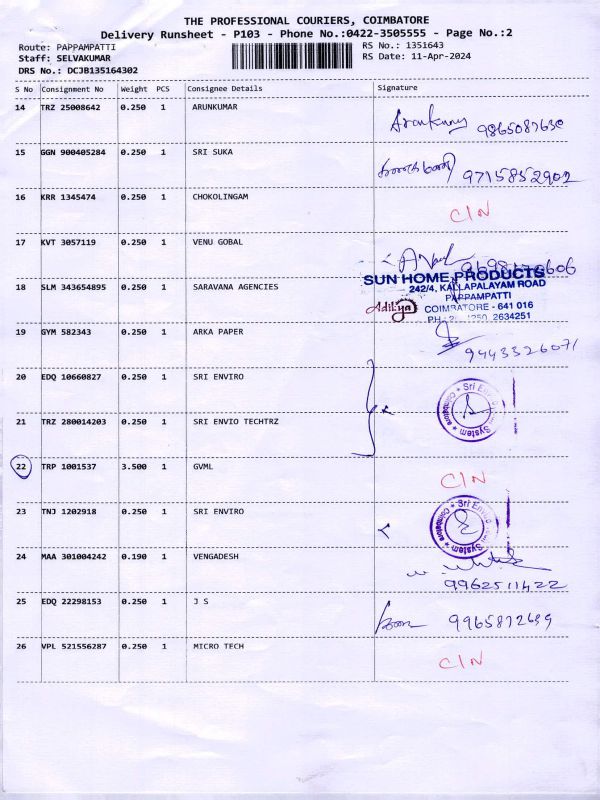 THE PROFESSIONAL COURIERS, COIMBATORE
Delivery Runsheet - P103 - Phone No.:0422-3505555 - Page No.:2
Route: PAPPAMPATTI
RS No.: 1351643
Staff: SELVAKUMAR
RS Date: 11-Apr-2024
DRS No.: DCJB135164302
S No Consignment No Weight PCS Consignee Details Signature
14 TRZ 25008642 0.250 1 ARUNKUMAR
Arunkumar 9865087630
15 GGN 900405284 0.250 1 SRI SUKA
9715852902
16 KRR 1345474 0.250 1 CHOKOLINGAM
C/N
17 KVT 3057119 0.250 1 VENU GOBAL
18 SLM 343654895 0.250 1 SARAVANA AGENCIES
SUN HOME PRODUCTS
242/4, KALLAPALAYAM ROAD
PAPPAMPATTI
Aditya COIMBATORE - 641 016
2634251
19 GYM 582343 0.250 1 ARKA PAPER
9443326071
20 EDQ 10660827 0.250 1 SRI ENVIRO
Sri Enviro System * Coimbatore *
21 TRZ 280014203 0.250 1 SRI ENVIO TECHTRZ
22 TRP 1001537 3.500 1 GVML
C/N
23 TNJ 1202918 0.250 1 SRI ENVIRO
Sri Enviro System * Coimbatore *
24 MAA 301004242 0.190 1 VENGADESH
9962511422
25 EDQ 22298153 0.250 1 J S
26 VPL 521556287 0.250 1 MICRO TECH
C/N